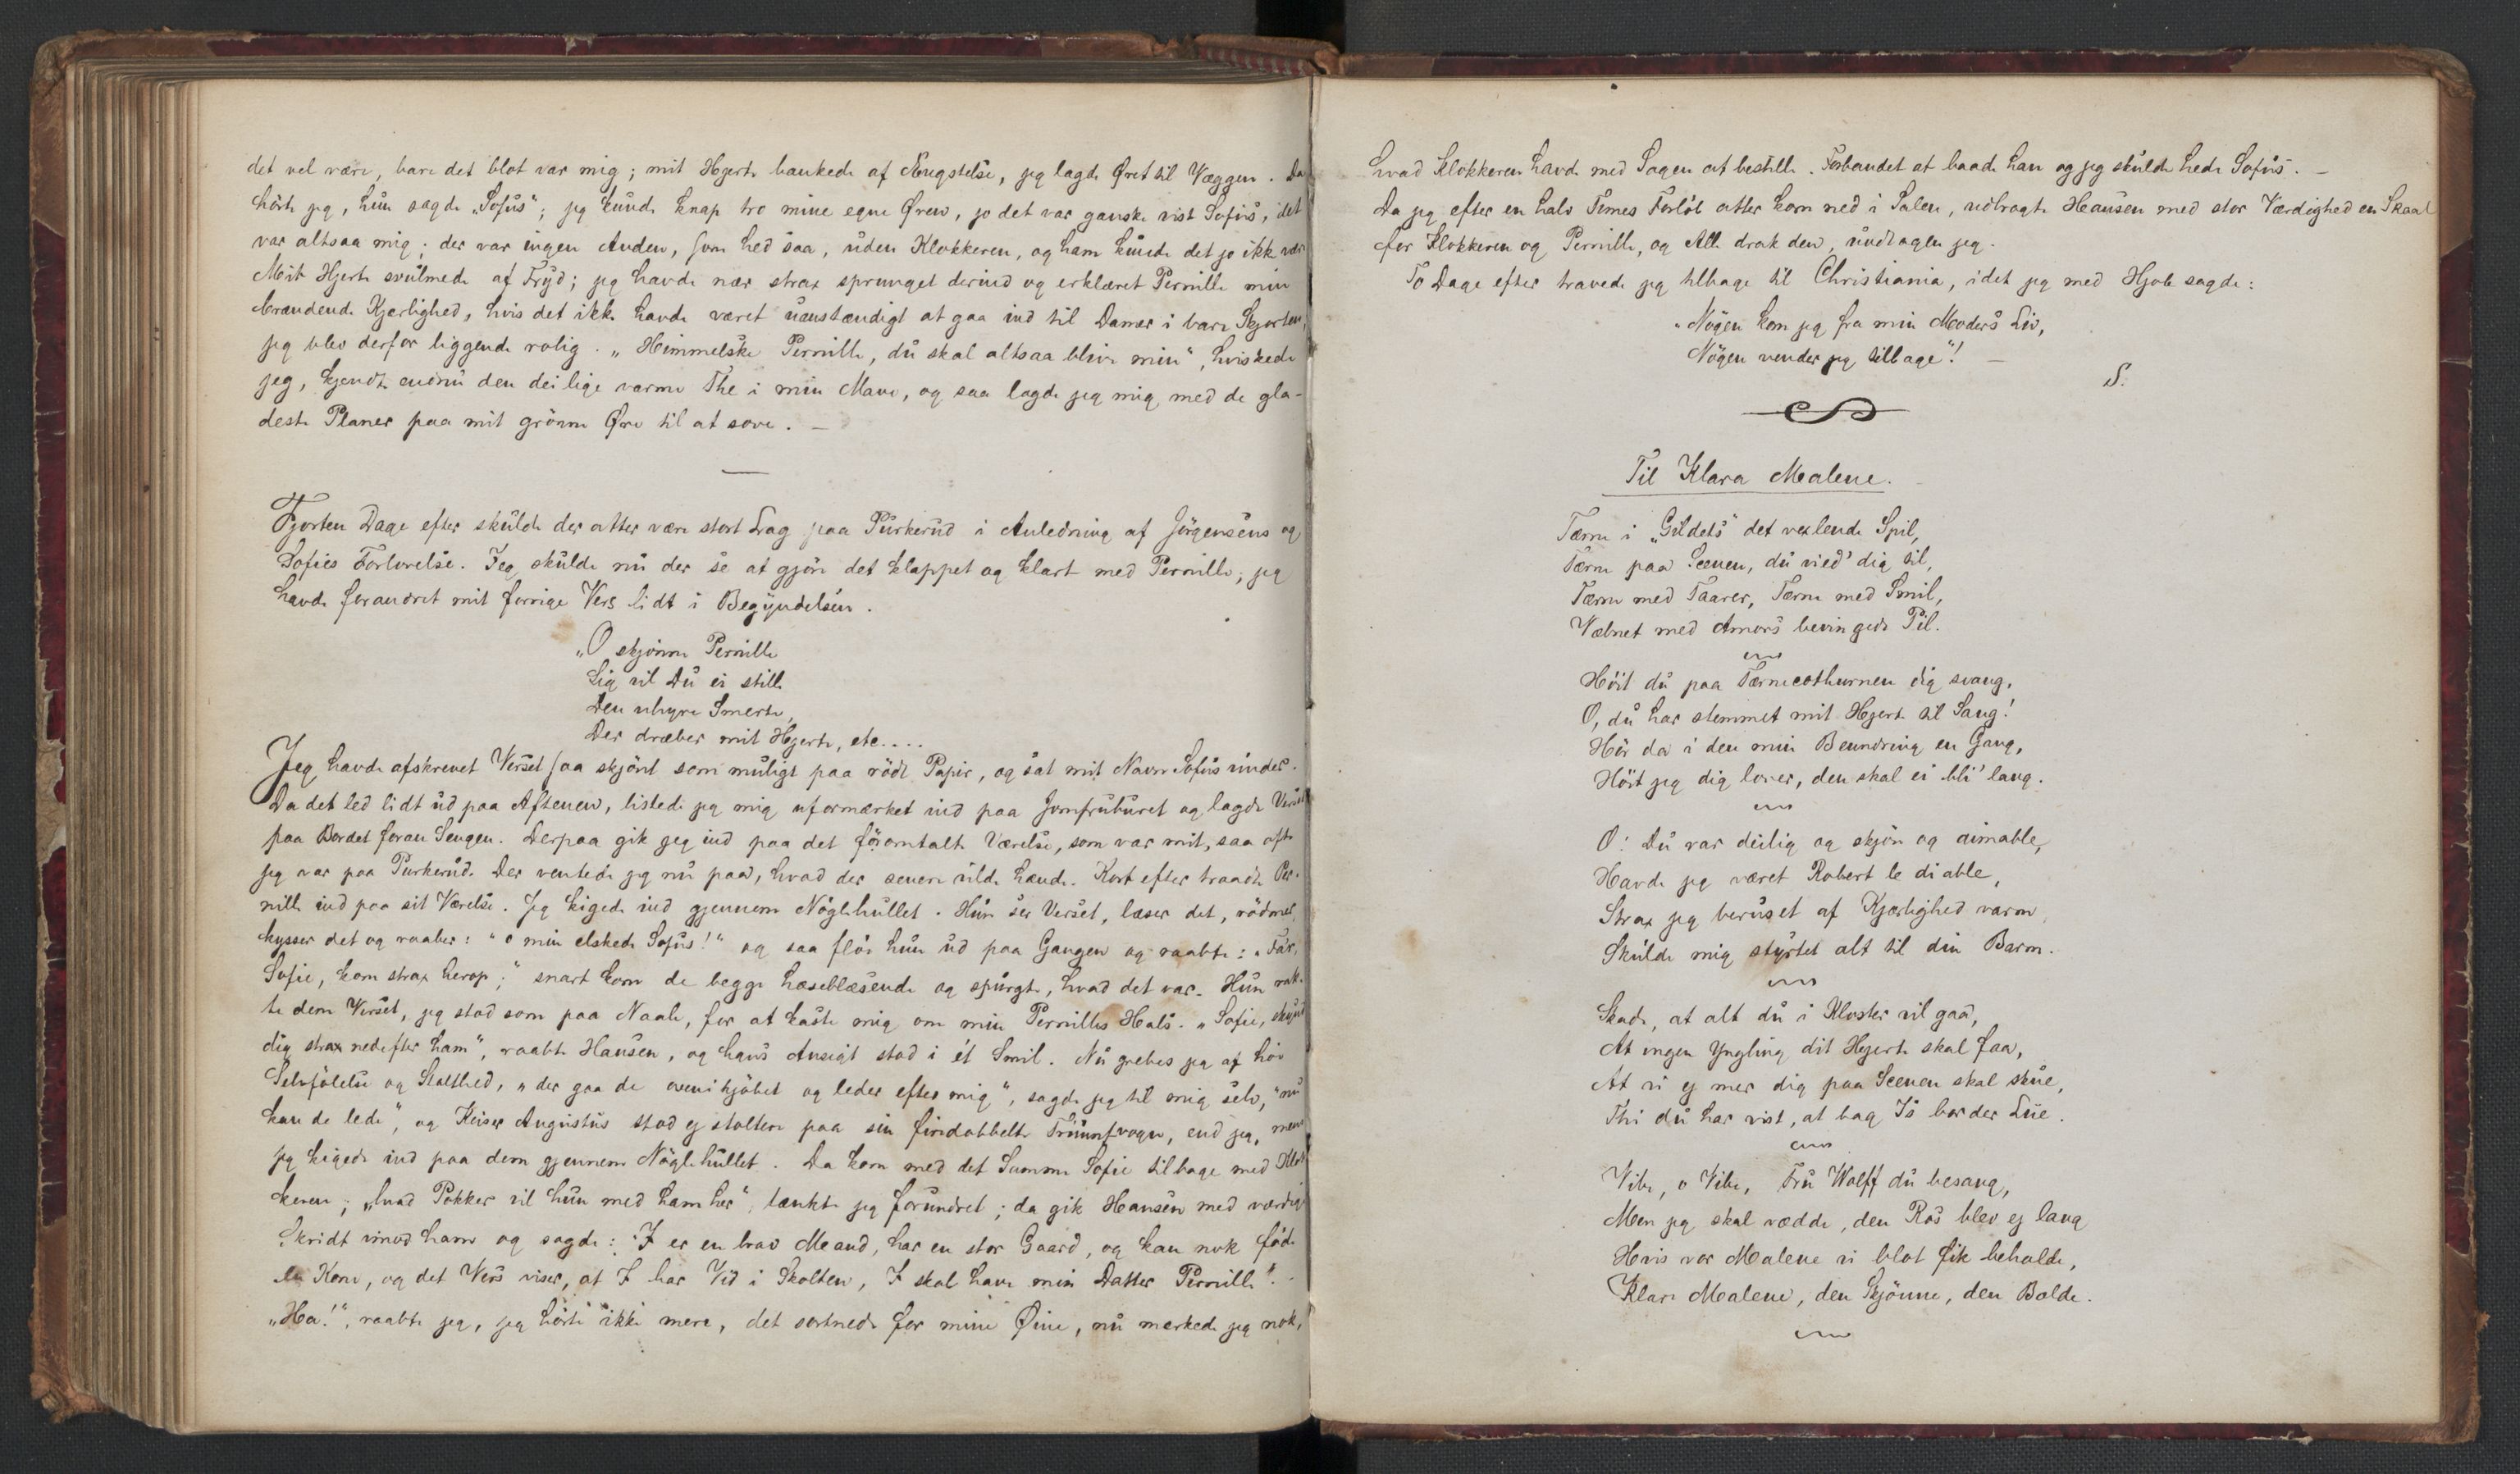 det vel være, bare det blot var mig; mit Hjerte bankede af Ængstelse, jeg lagde Øret til Væggen. Da
hörte jeg, hun sagde „Sofus“; jeg kunde knap tro mine egne Øren, jo det var ganske vist Sofus, det
var altsaa mig; der var ingen Anden, som hed saa, uden Klokkeren, og ham kunde det jo ikke være
Mit Hjerte svulmede af Fryd; jeg havde nær strax sprunget derind og erklæret Pernille min
brændende Kjærlighed, hvis det ikke havde været uanstændigt at gaa ind til Damer i bare Skjorten,
jeg blev derfor liggende rolig. „Himmelske Pernille, du skal altsaa blive min“, hviskede
jeg, kjendte endnu den deilige varme The i min Mave, og saa lagde jeg mig med de gla-
deste Planer paa mit grönne Øre til at sove. —
Fjorten Dage efter skulde der atter være stort Lag paa Purkerud i Anledning af Jörgensens og
Sofies Forlovelse. Jeg skulde nu der se at gjöre det klappet og klart med Pernille; jeg
havde forandret mit forrige Vers lidt i Begyndelsen.
„O skjönne Pernille
Sig vil Du ei stille
Den uhyre Smerte,
Der dræber mit Hjerte, etc....
Jeg havde afskrevet Verset saa skjönt som muligt paa rödt Papir, og sat mit Navn Sofus under.
Da det led lidt ud paa Aftenen, listede jeg mig uformærket ind paa Jomfruburet og lagde Verset
paa Bordet foran Sengen. Derpaa gik jeg ind paa det föromtalte Værelse, som var mit, saa ofte
jeg var paa Purkerud. Der ventede jeg nu paa, hvad der senere vilde hænde. Kort efter traadte Per-
nille ind paa sit Værelse. Jeg kigede ind gjennem Nöglehullet. Hun ser Verset, læser det, rödmer,
kysser det og raaber: “o min elskede Sofus!“ og saa flöi hun ud paa Gangen og raabte: „Far,
Sofie, kom strax herop;“ snart kom de begge hæseblæsende og spurgte, hvad det var. Hun rak-
te dem Verset, jeg stod som paa Naale, for at kaste mig om min Pernilles Hals. „Sofie, skynd
dig strax nedefter ham“, raabte Hansen, og hans Ansigt stod i ét Smil. Nu grebes jeg af höi
Selvfölelse og Stolthed, „der gaa de ovenikjöbet og leder efter mig“, sagde jeg til mig selv, “nu
kan de lede“, og Keiser Augustus stod ej stoltere paa sin firedobbelte Triumfvogn, end jeg, mens
jeg kigede ind paa dem gjennem Nöglehullet. Da kom med det Samme Sofie tilbage med Klok-
keren; „hvad Pokker vil hun med ham her“, tænkte jeg forundret; da gik Hansen med værdige
Skridt imod ham og sagde: “I er en brav Mand, har en stor Gaard, og kan nok föde
en Kone, og det Vers viser, at I har Vid i Skolten, I skal have min Datter Pernille“. -
„Ha!“, raabte jeg, jeg hörte ikke mere, det sortnede for mine Øine, nu mærkede jeg nok,
hvad Klokkeren havde med Sagen at bestille. Forbandet at baade han og jeg skulde hede Sofus. —
Da jeg efter en halv Times Forlöb atter kom ned i Salen, udbragte Hansen med stor Værdighed en Skaal
for Klokkeren og Pernille, og Alle drak den, undtagen jeg.
To Dage efter travede jeg tilbage til Christiania, idet jeg med Hjob sagde:
“Nögen kom jeg fra min Moders Liv,
Nögen vender jeg tilbage“! —
S.
Til Klara Malene.
Tærne i „Gildets“ det vexlende Spil,
Tærne paa Scenen, du vied' dig til,
Tærne med Taarer, Tærne med Smil,
Væbnet med Amors bevingede Pil.
Höit du paa Tærnecothurnen dig svang,
O, du har stemmet mit Hjerte til Sang!
Hör da i den min Beundring en Gang,
Höit jeg dig lover, den skal ei bli' lang.
O! Du var deilig og skjön og aimable,
Havde jeg været Robert le diable,
Strax jeg beruset af Kjærlighed varm
Skulde mig styrtet alt til din Barm.
Skade, at alt du i Kloster vil gaa,
At ingen Yngling dit Hjerte skal faa,
At vi ej mer dig paa Scenen skal skue,
Thi du har vist, at bag Is bor der Lue.
Vibe, o Vibe, Fru Wolff du besang,
Men jeg skal vædde, den Ros blev ej lang
Hvis vor Malene vi blot fik beholde,
Klare Malene, den Skjönne, den Bolde.